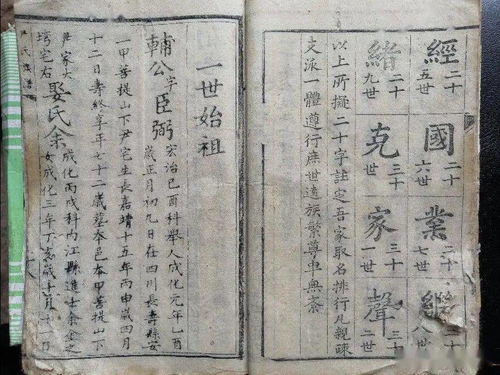 經二十五世國二十六世業二十七世繼二十八世
緒二十九世克三十世家三十一世聲三十二世
以上所擬二十字註定吾家取名排行凡親疎
文派一體遵行庶世遠族繁尊卑無紊
一世始祖
輔公字臣弼
宏治己酉科舉人成化元年乙酉
歲正月初九日在四川長壽縣安
一甲菩提山下尹宅生長嘉靖十五年丙申歲四月
十二日壽終享年七十二歲墓本邑本甲菩提山下
尹家大
塆宅右
娶氏余
成化丙戌科內江縣進士余金之
女成化三年丁亥歲